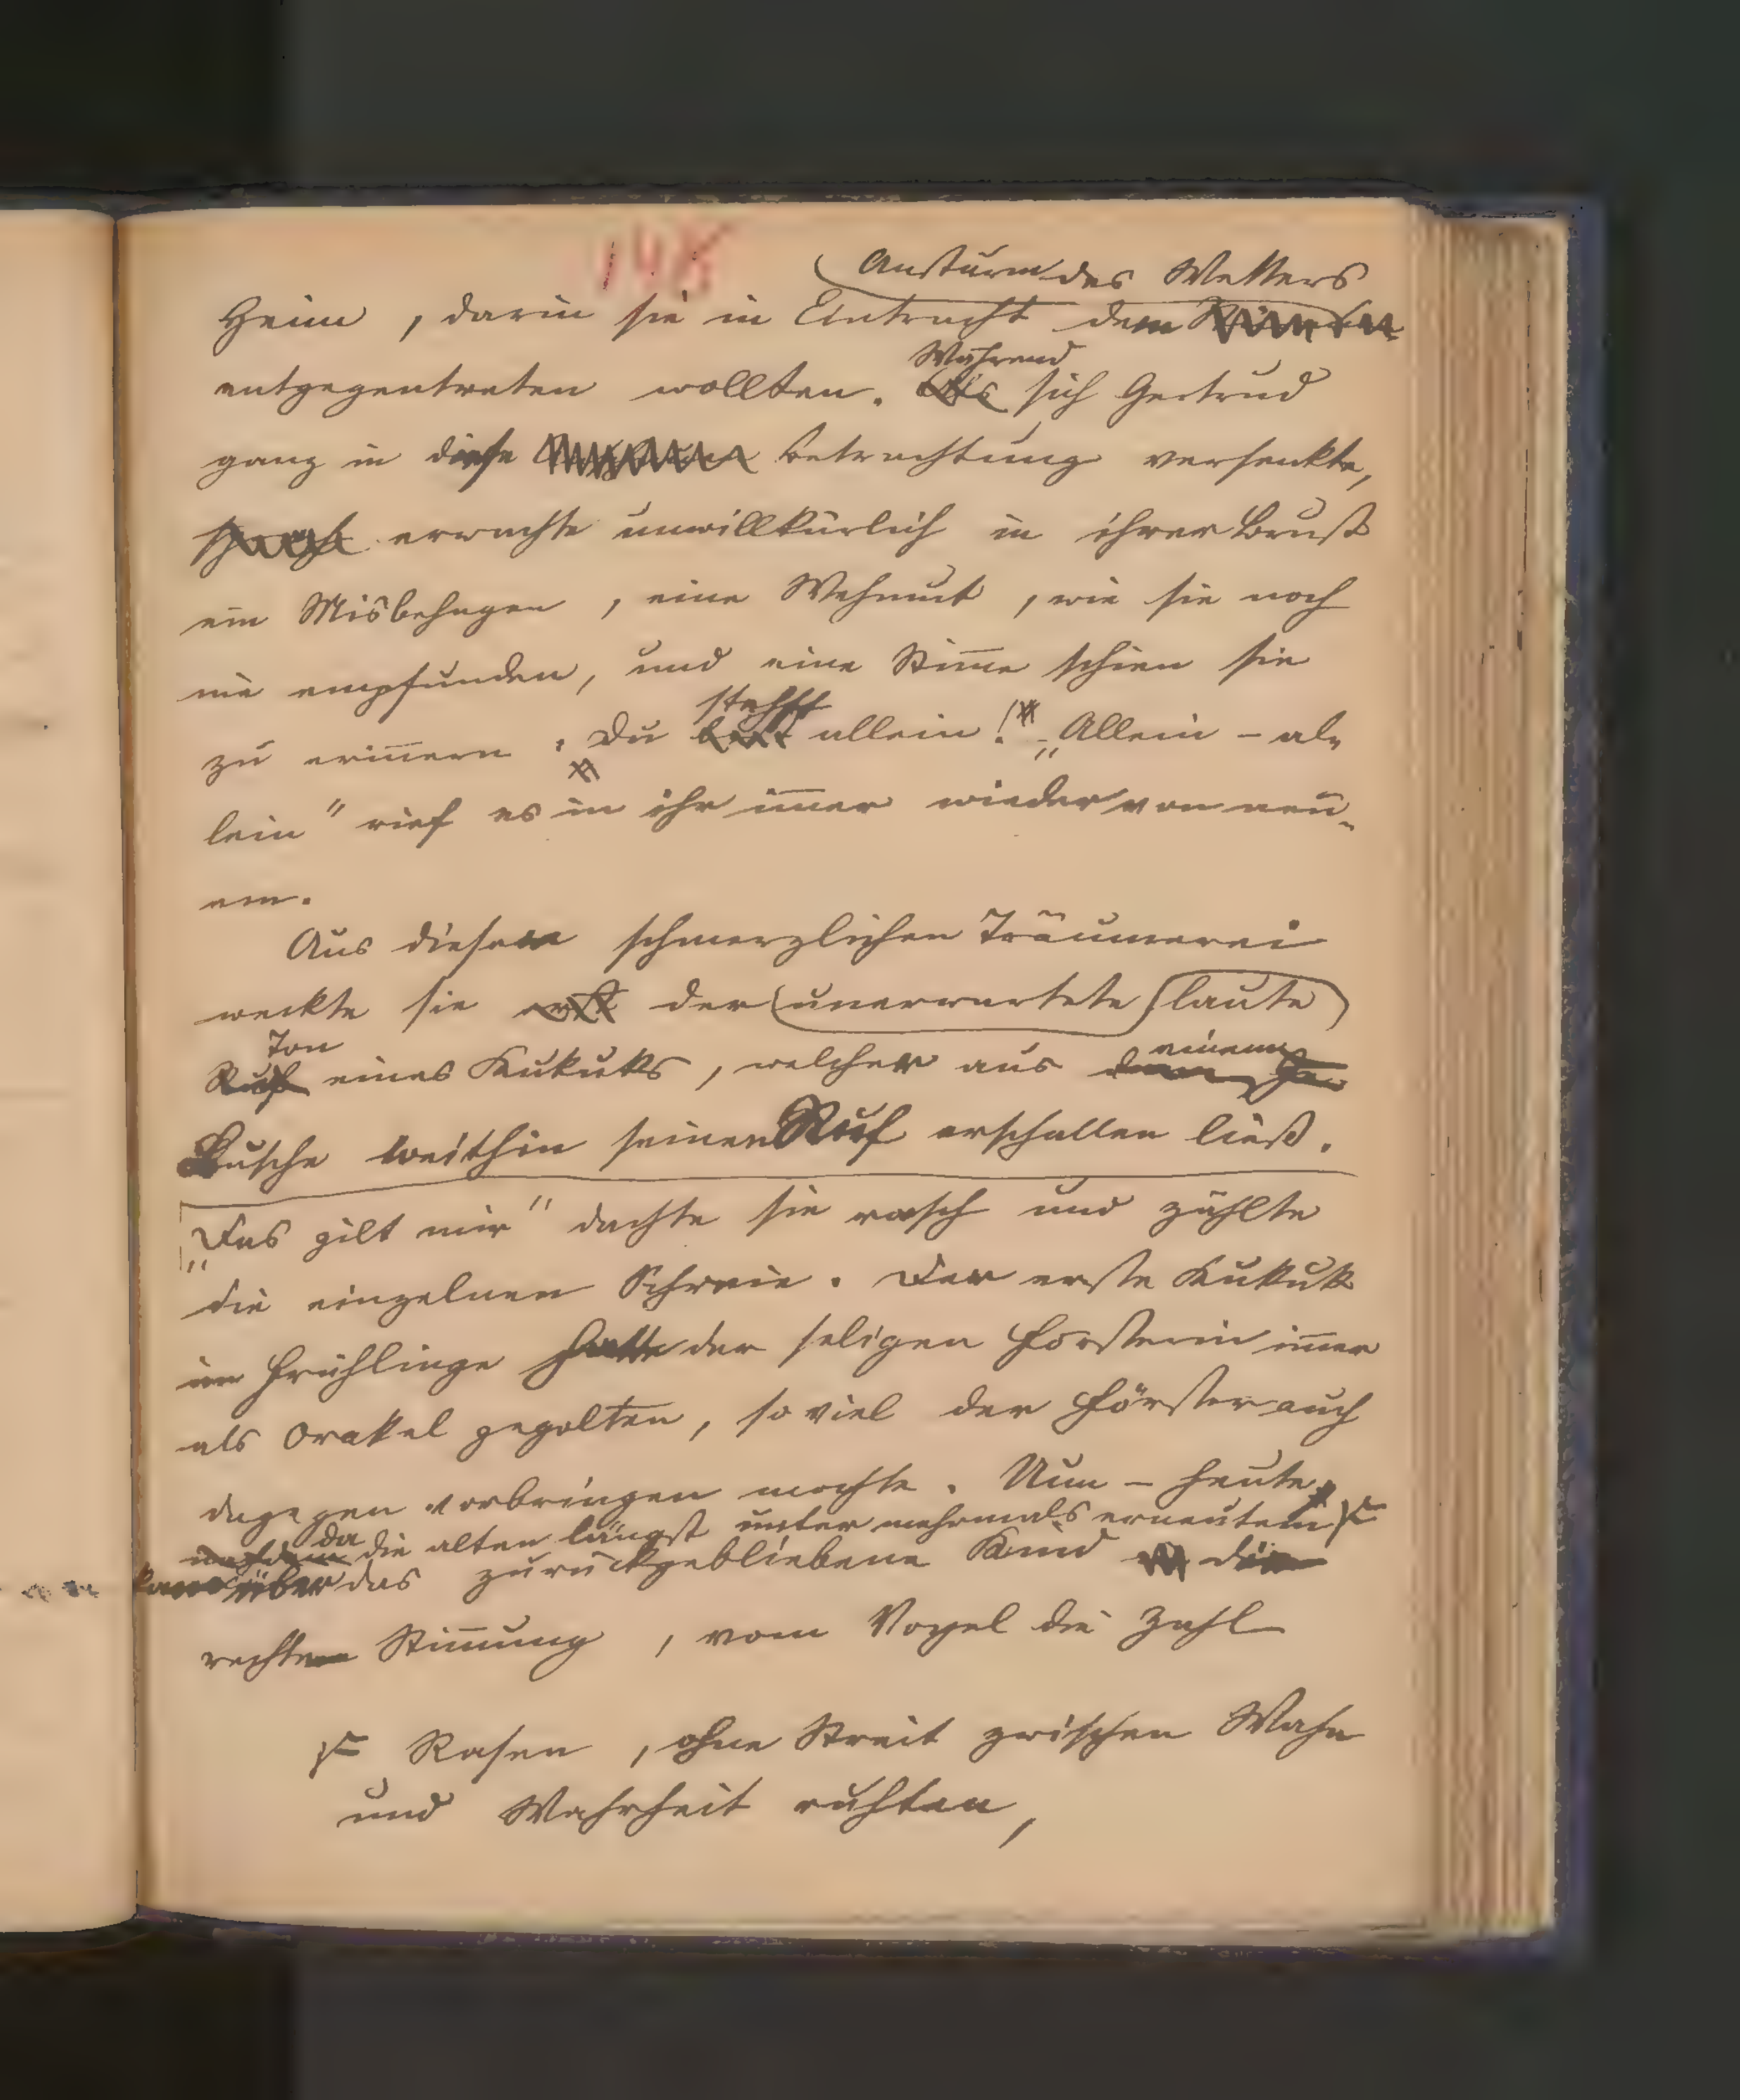 145
Ansturm des Wetters
Heim, darin sie in Eintracht dem
Während
entgegentreten wollten. Als sich Gertrud
ganz in diese Betrachtung versenkte,
erwachte unwillkürlich in ihrer Brust
ein Misbehagen, eine Wehmut, wie sie noch
nie empfunden, und eine Stim̅e schien sie
stehst
zu erin̅ern: Du bist allein! „Allein - al-
lein" rief es in ihr im̅er wieder von neu-
em.
Aus dieser schmerzlichen Träumerei
weckte sie erst der unerwartete laute
Ton
Ruf eines Kukuks, welcher aus dem Ge
einem
Busche weithin seinen Ruf erschallen ließ.
„Das gilt mir" dachte sie rasch und zählte
die einzelnen Schreie. Der erste Kukuk
im Frühlinge hatte der seligen Försterin im̅er
als Orakel gegolten, so viel der Förster auch
dagegen vorbringen mochte. Nun - heute,
nachdem da die alten längst unter mehrmals erneutem
kam über das zurückgebliebene Kind die
rechte Stim̅ung, vom Vogel die Zahl
Rasen, ohne Streit zwischen Wahn
und Wahrheit ruhten,